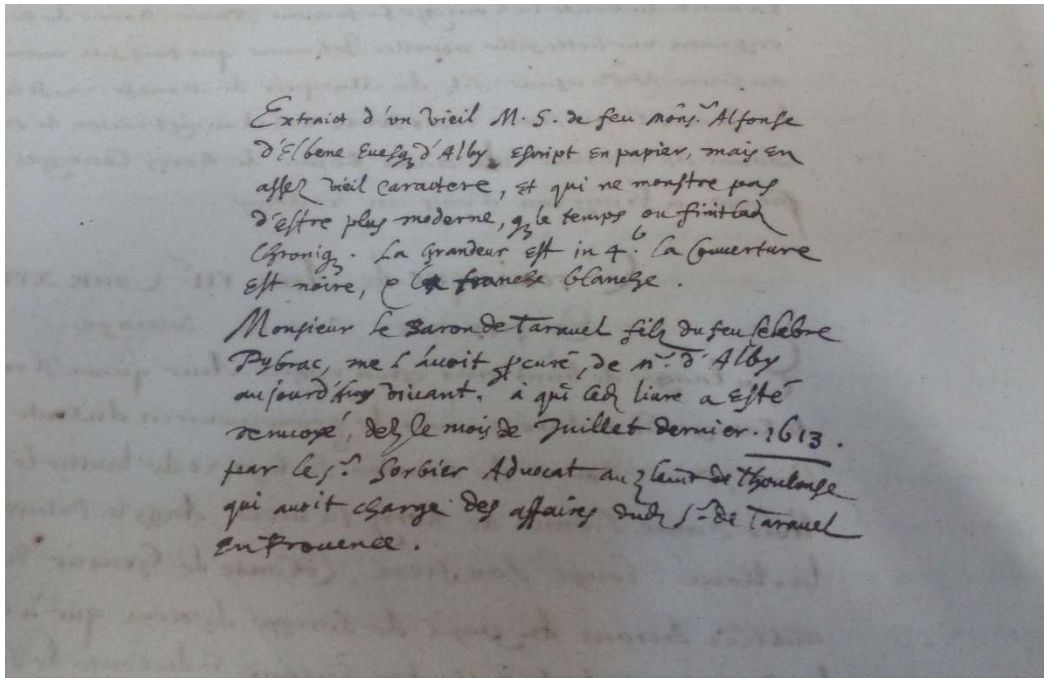 Extraict d'vn vieil M. S. de feu Mons.r Alfonse
d'Elbene Euesq d'Alby, escript en papier, mais en
assez vieil caractere, et qui ne monstre pas
d'estre plus moderne, q le temps ou finit lad
Chroniq. La grandeur est in 4.o la Couuerture
est noire, & la tranche blanche.
Monsieur le Baron de Tarauel filz du feu celebre
Pybrac, me l'auoit pcuré, de Mr. d'Alby
aujourd'huy viuant. à qui led liure a esté
renuoyé, dez le mois de Juillet dernier. 1613.
par le Sr. Sorbier Aduocat au de Thoulouse
qui auoit charge des affaires dud Sr. de Tarauel
en Prouence.